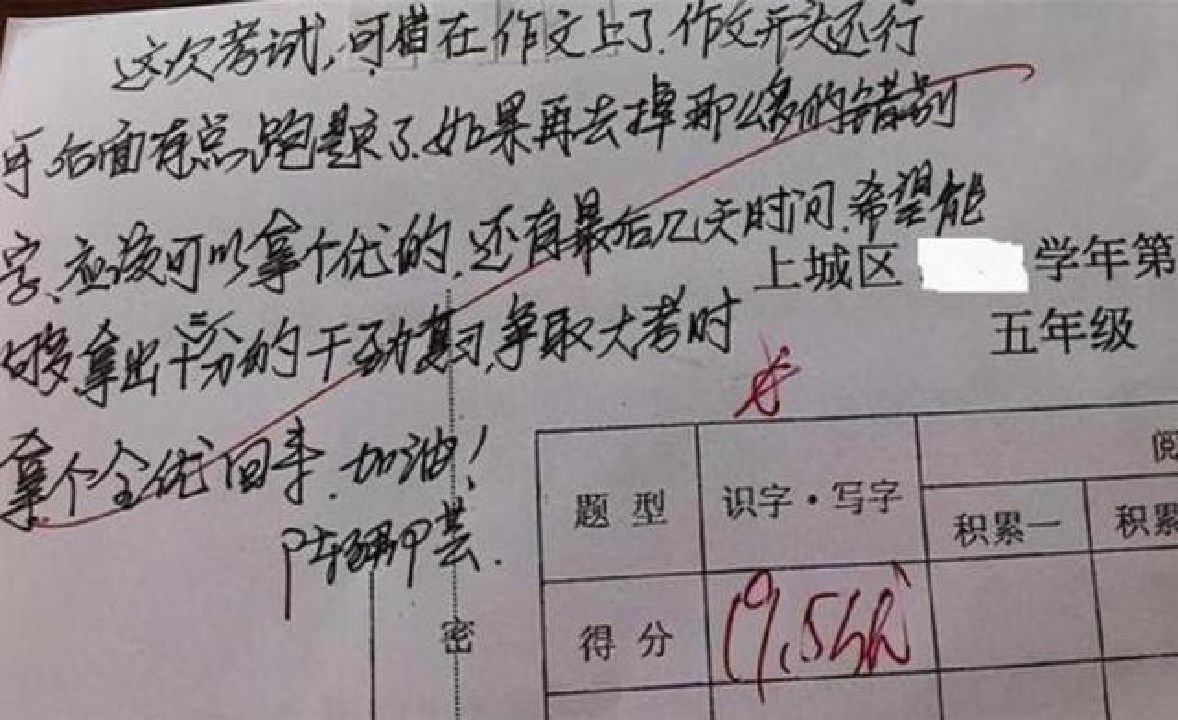 这次考试,可惜在作文上了.作文开头还行
可后面有点跑题了.如果再去掉那么多的错别
字、应该可以拿个优的.还有最后几天时间.希望能
够拿出十二分的干劲复习,争取大考时
拿个全优回来.加油!
上城区
学年第
五年级
题型
识字·写字
阅
积累一
积累
得分
19.5
密